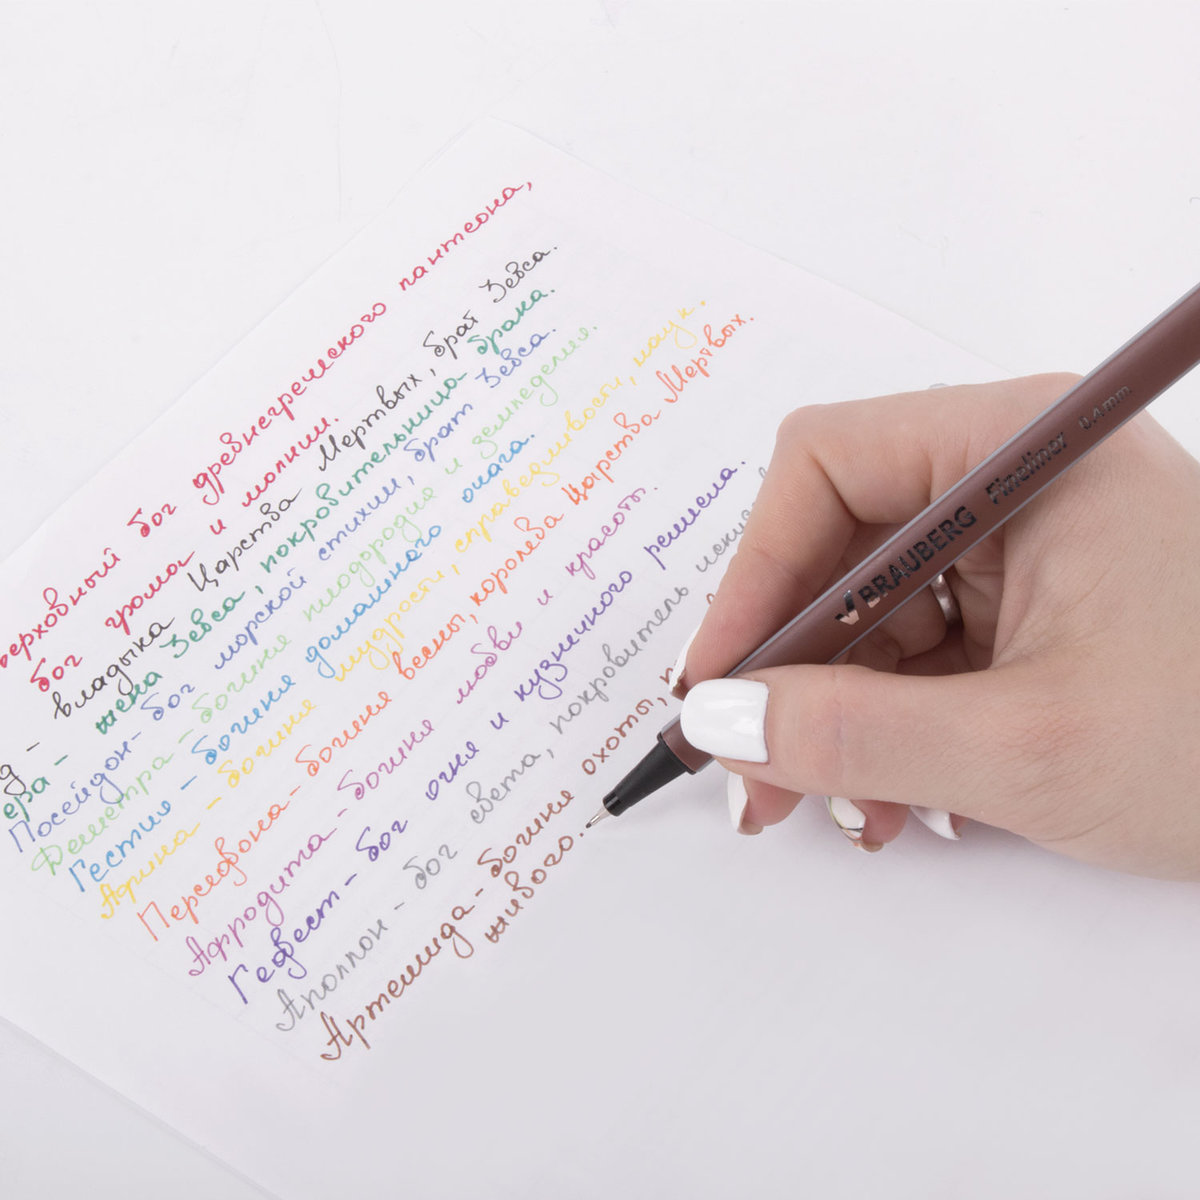 верховный бог древнегреческого пантеона,
бог грома и молнии.
владыка Царства Мертвых, брат Зевса.
ера - жена Зевса, покровительница брака.
Посейдон - бог морской стихии, брат Зевса.
Деметра - богиня плодородия и земледелия.
Гестия - богиня домашнего очага.
Афина - богиня мудрости, справедливости, наук.
Персефона - богиня весны, королева Царства Мертвых.
Афродита - богиня любви и красоты.
Гефест - бог огня и кузнечного ремесла.
Аполлон - бог света, покровитель
Артемида - богиня охоты,
живого.
BRAUBERG Fineliner 0.4 mm